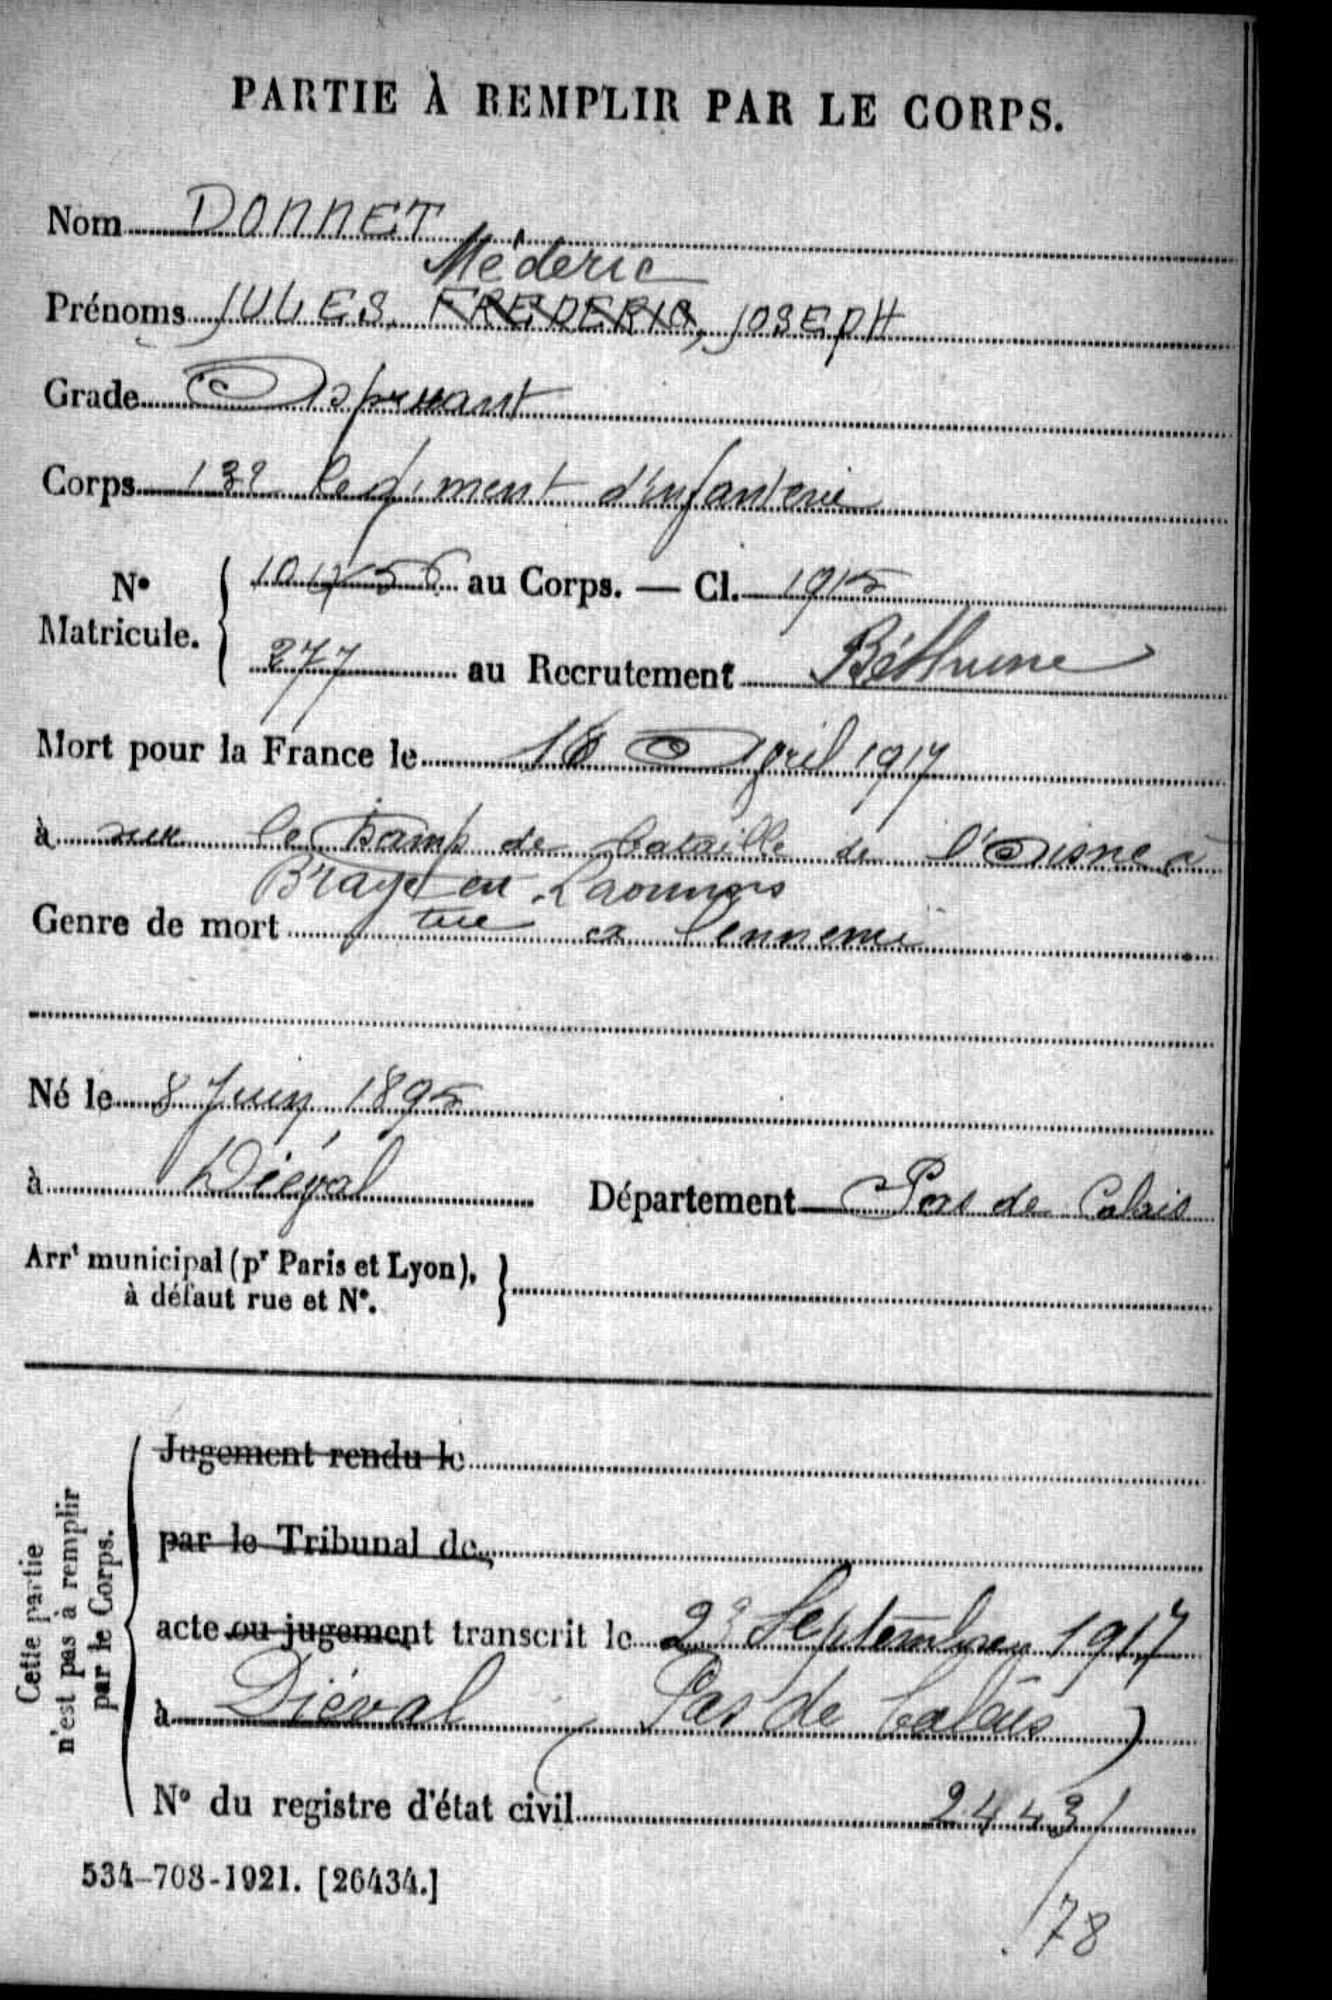 PARTIE À REMPLIR PAR LE CORPS.
Nom DONNET
Médéric
Prénoms JULES, FREDERIC, JOSEPH
Grade Aspirant
Corps 132 Régiment d'infanterie
N° Matricule. au Corps. — Cl. 1915
277 au Recrutement Béthune
Mort pour la France le 16 Avril 1917
à sur le Champ de bataille de l'Aisne à
Braye en Laonnois
Genre de mort tué à l'ennemi
Né le 8 Juin 1895
à Diéval Département Pas de Calais
Arrt municipal (pr Paris et Lyon),
à défaut rue et N°.
Cette partie
n'est pas à remplir
par le Corps.
Jugement rendu le
par le Tribunal de
acte ou jugement transcrit le Septembre 1917
à Diéval (Pas de Calais)
N° du registre d'état civil 2443/
78
534-708-1921. [26434.]